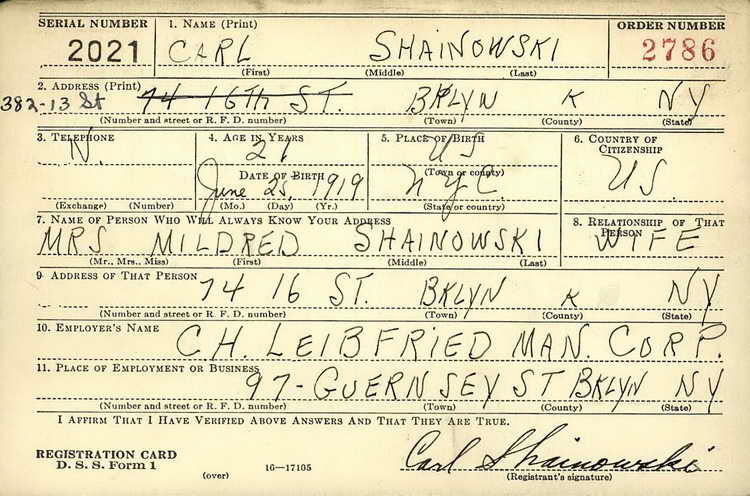 SERIAL NUMBER 1. NAME (Print) ORDER NUMBER
2021 CARL SHAINOWSKI 2786
(First) (Middle) (Last)
2. ADDRESS (Print)
382-13 St 74 16TH ST. BKLYN K NY
(Number and street or R. F. D. number) (Town) (County) (State)
3. TELEPHONE 4. AGE IN YEARS 5. PLACE OF BIRTH 6. COUNTRY OF CITIZENSHIP
N. 21 US U.S.
DATE OF BIRTH (Town or county)
June 25, 1919 NYC.
(Exchange) (Number) (Mo.) (Day) (Yr.) (State or country)
7. NAME OF PERSON WHO WILL ALWAYS KNOW YOUR ADDRESS 8. RELATIONSHIP OF THAT PERSON
MRS MILDRED SHAINOWSKI WIFE
(Mr., Mrs., Miss) (First) (Middle) (Last)
9. ADDRESS OF THAT PERSON
74 16 ST. BKLYN K NY
(Number and street or R. F. D. number) (Town) (County) (State)
10. EMPLOYER'S NAME
C.H. LEIBFRIED MAN. CORP.
11. PLACE OF EMPLOYMENT OR BUSINESS
97-GUERNSEY ST BKLYN NY
(Number and street or R. F. D. number) (Town) (County) (State)
I AFFIRM THAT I HAVE VERIFIED ABOVE ANSWERS AND THAT THEY ARE TRUE.
REGISTRATION CARD
D. S. S. Form 1 Carl Shainowski
(over) 16—17105 (Registrant's signature)